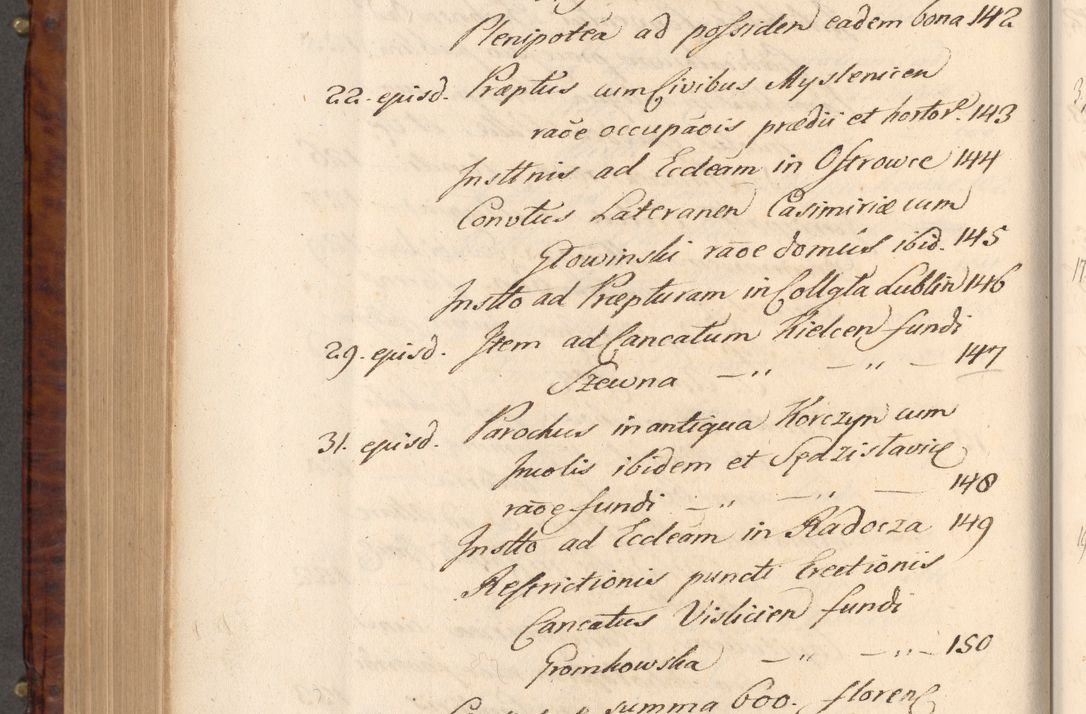 Plenipotēa ad possiden eadem bona 142
22. episd. Præptus cum Civibus Myslenicen
raōe occupāois prædii et hortor. 143
Insttnis ad Ecclēam in Ostrowce 144
Convtus Lateranen Casimiriæ cum
Głowinski raōe domûs ibid. 145
Instto ad Præpturam in Collgta Lublin 146
29. episd. Item ad Cancatum Kielcen fundi
Szewna — " — " — 147
31. episd. Parochus in antiqua Korczyn cum
Incolis ibidem et Spdzistavice
raōe fundi — " — " — 148
Instto ad Ecclēam in Radocza 149
Restrictionis puncti Erectionis
Cancatus Vislicien fundi
Gromkowska — " — " — 150
summa 600. floren